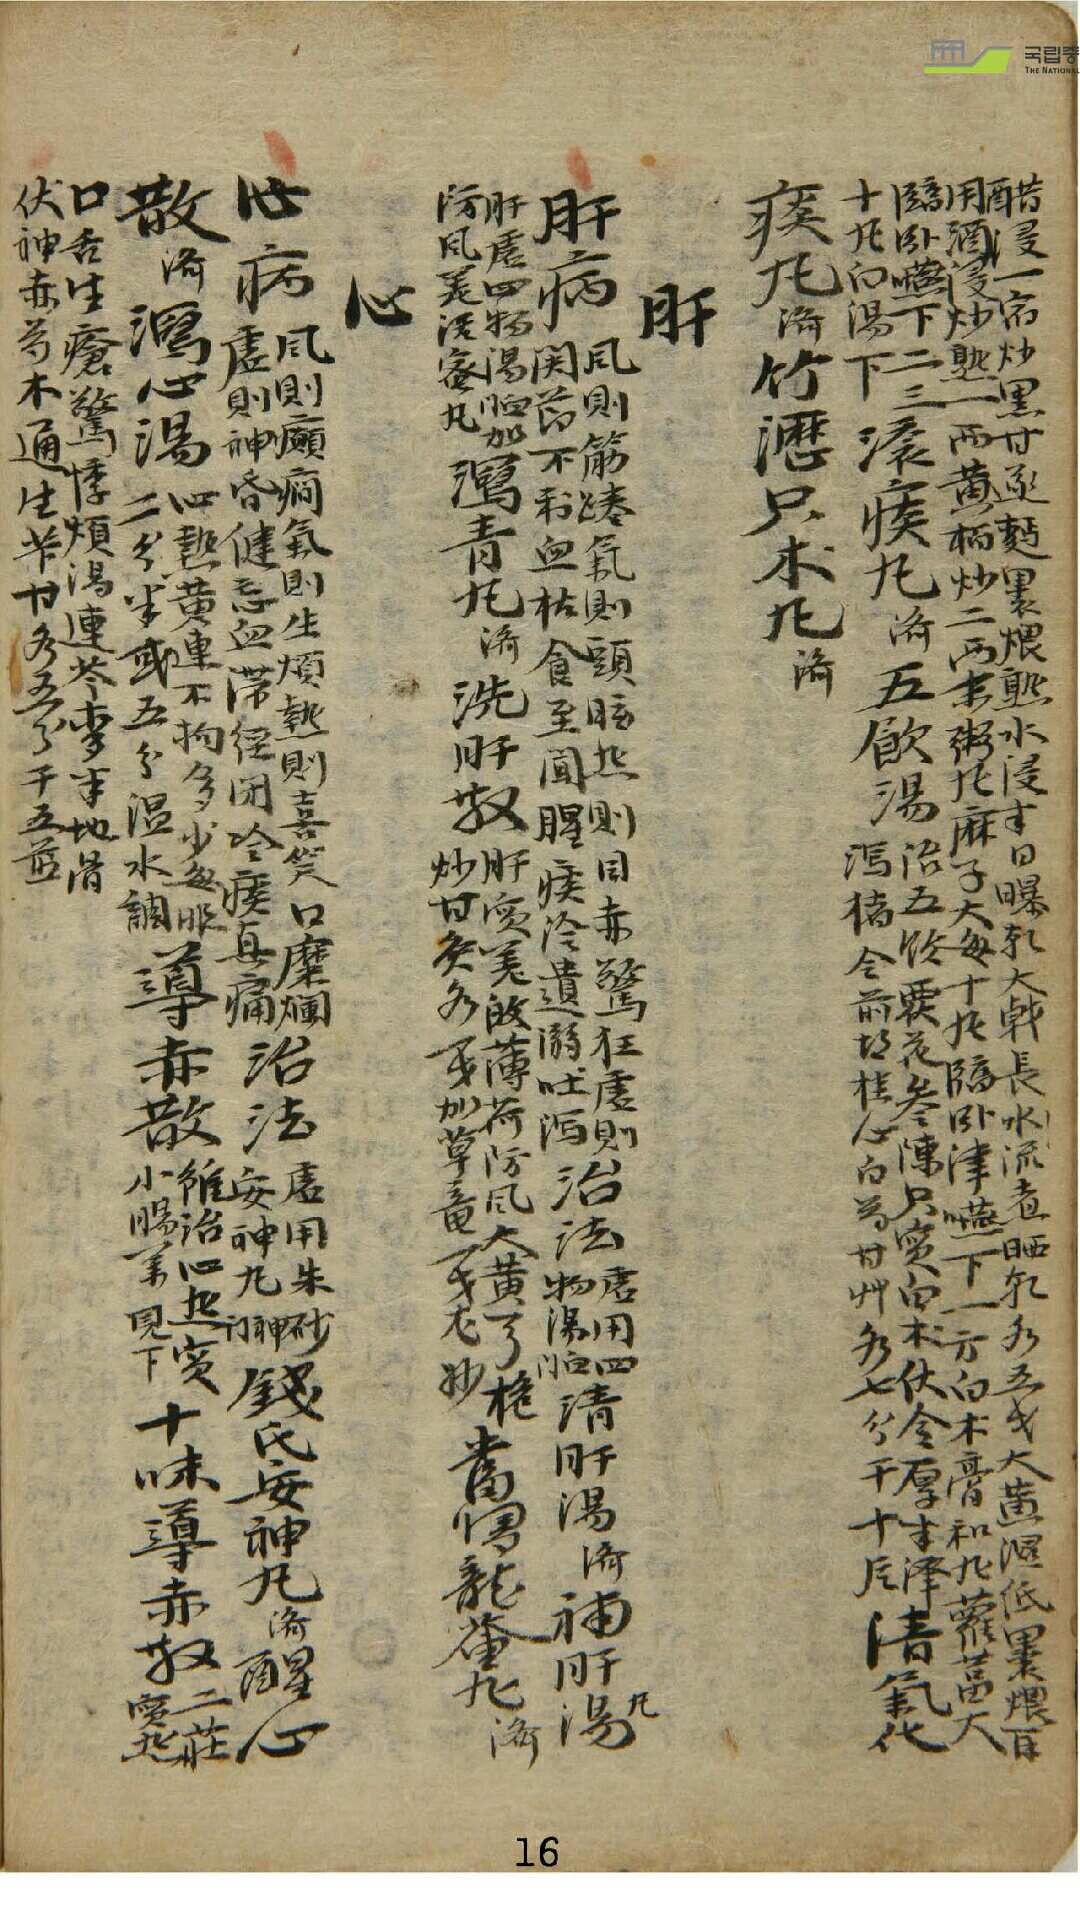 醋浸一宿炒黑甘遂麪裹煨熟水浸半日曝乾大戟長水流煮晒乾各五戔大黃濕低裹煨百
用酒浸炒熟一兩黃栢炒二兩末粥丸麻子大每十丸臨臥津嚥下一方白朮膏和丸蘿葍大
臨臥嚥下二三
十丸白湯下
滾痰丸 濟 五飮湯 治五飮覄花參陳只實白朮伏令厚半澤
瀉猪令前胡桂心白芍甘艸各七分干十片
淸氣化
痰丸 濟 竹瀝只朮丸 濟
肝
肝病 風則筋踡氣則頭眩热則目赤驚狂虛則
関莭不利血枯食至聞腥痰冷遺溺吐瀉
治法 虛用四
物湯
淸肝湯 濟 補肝湯 丸
肝虛四物湯 加
防風羌活蜜丸
瀉青丸 濟 洗肝散 肝實羌 薄荷防風大黃 梔
炒甘灸各 戔加草竜
當歸龍薈丸 濟
心
心病 風則癲癎氣則生煩熱則喜笑口糜爛
虛則神昏健忘血滯經閉冷痰眞痛
治法 虛用朱砂
安神丸
錢氏安神丸 濟 醒心
散 濟 瀉心湯 心熱黃連不拘多少每服
二分半或五分温水調
導赤散 治心热實
小腸 見下
十味導赤散 二莊
實热
口舌生瘡驚悸煩渴連芩麥半地骨
伏神赤芍木通生 甘各五分干五
16
국립중
THE NATIONAL